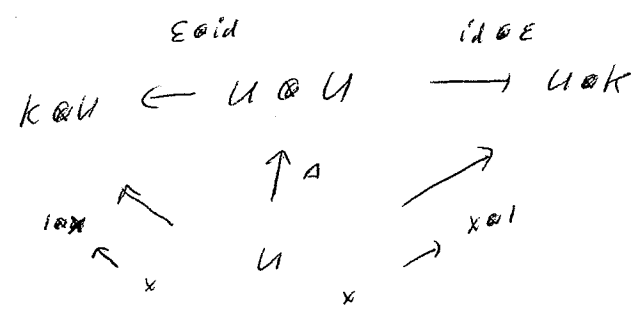 ε⊗id id⊗ε
K⊗U ← U⊗U → U⊗K
↖ ↑ Δ ↗
1⊗x x⊗1
↖ U ↗
x x